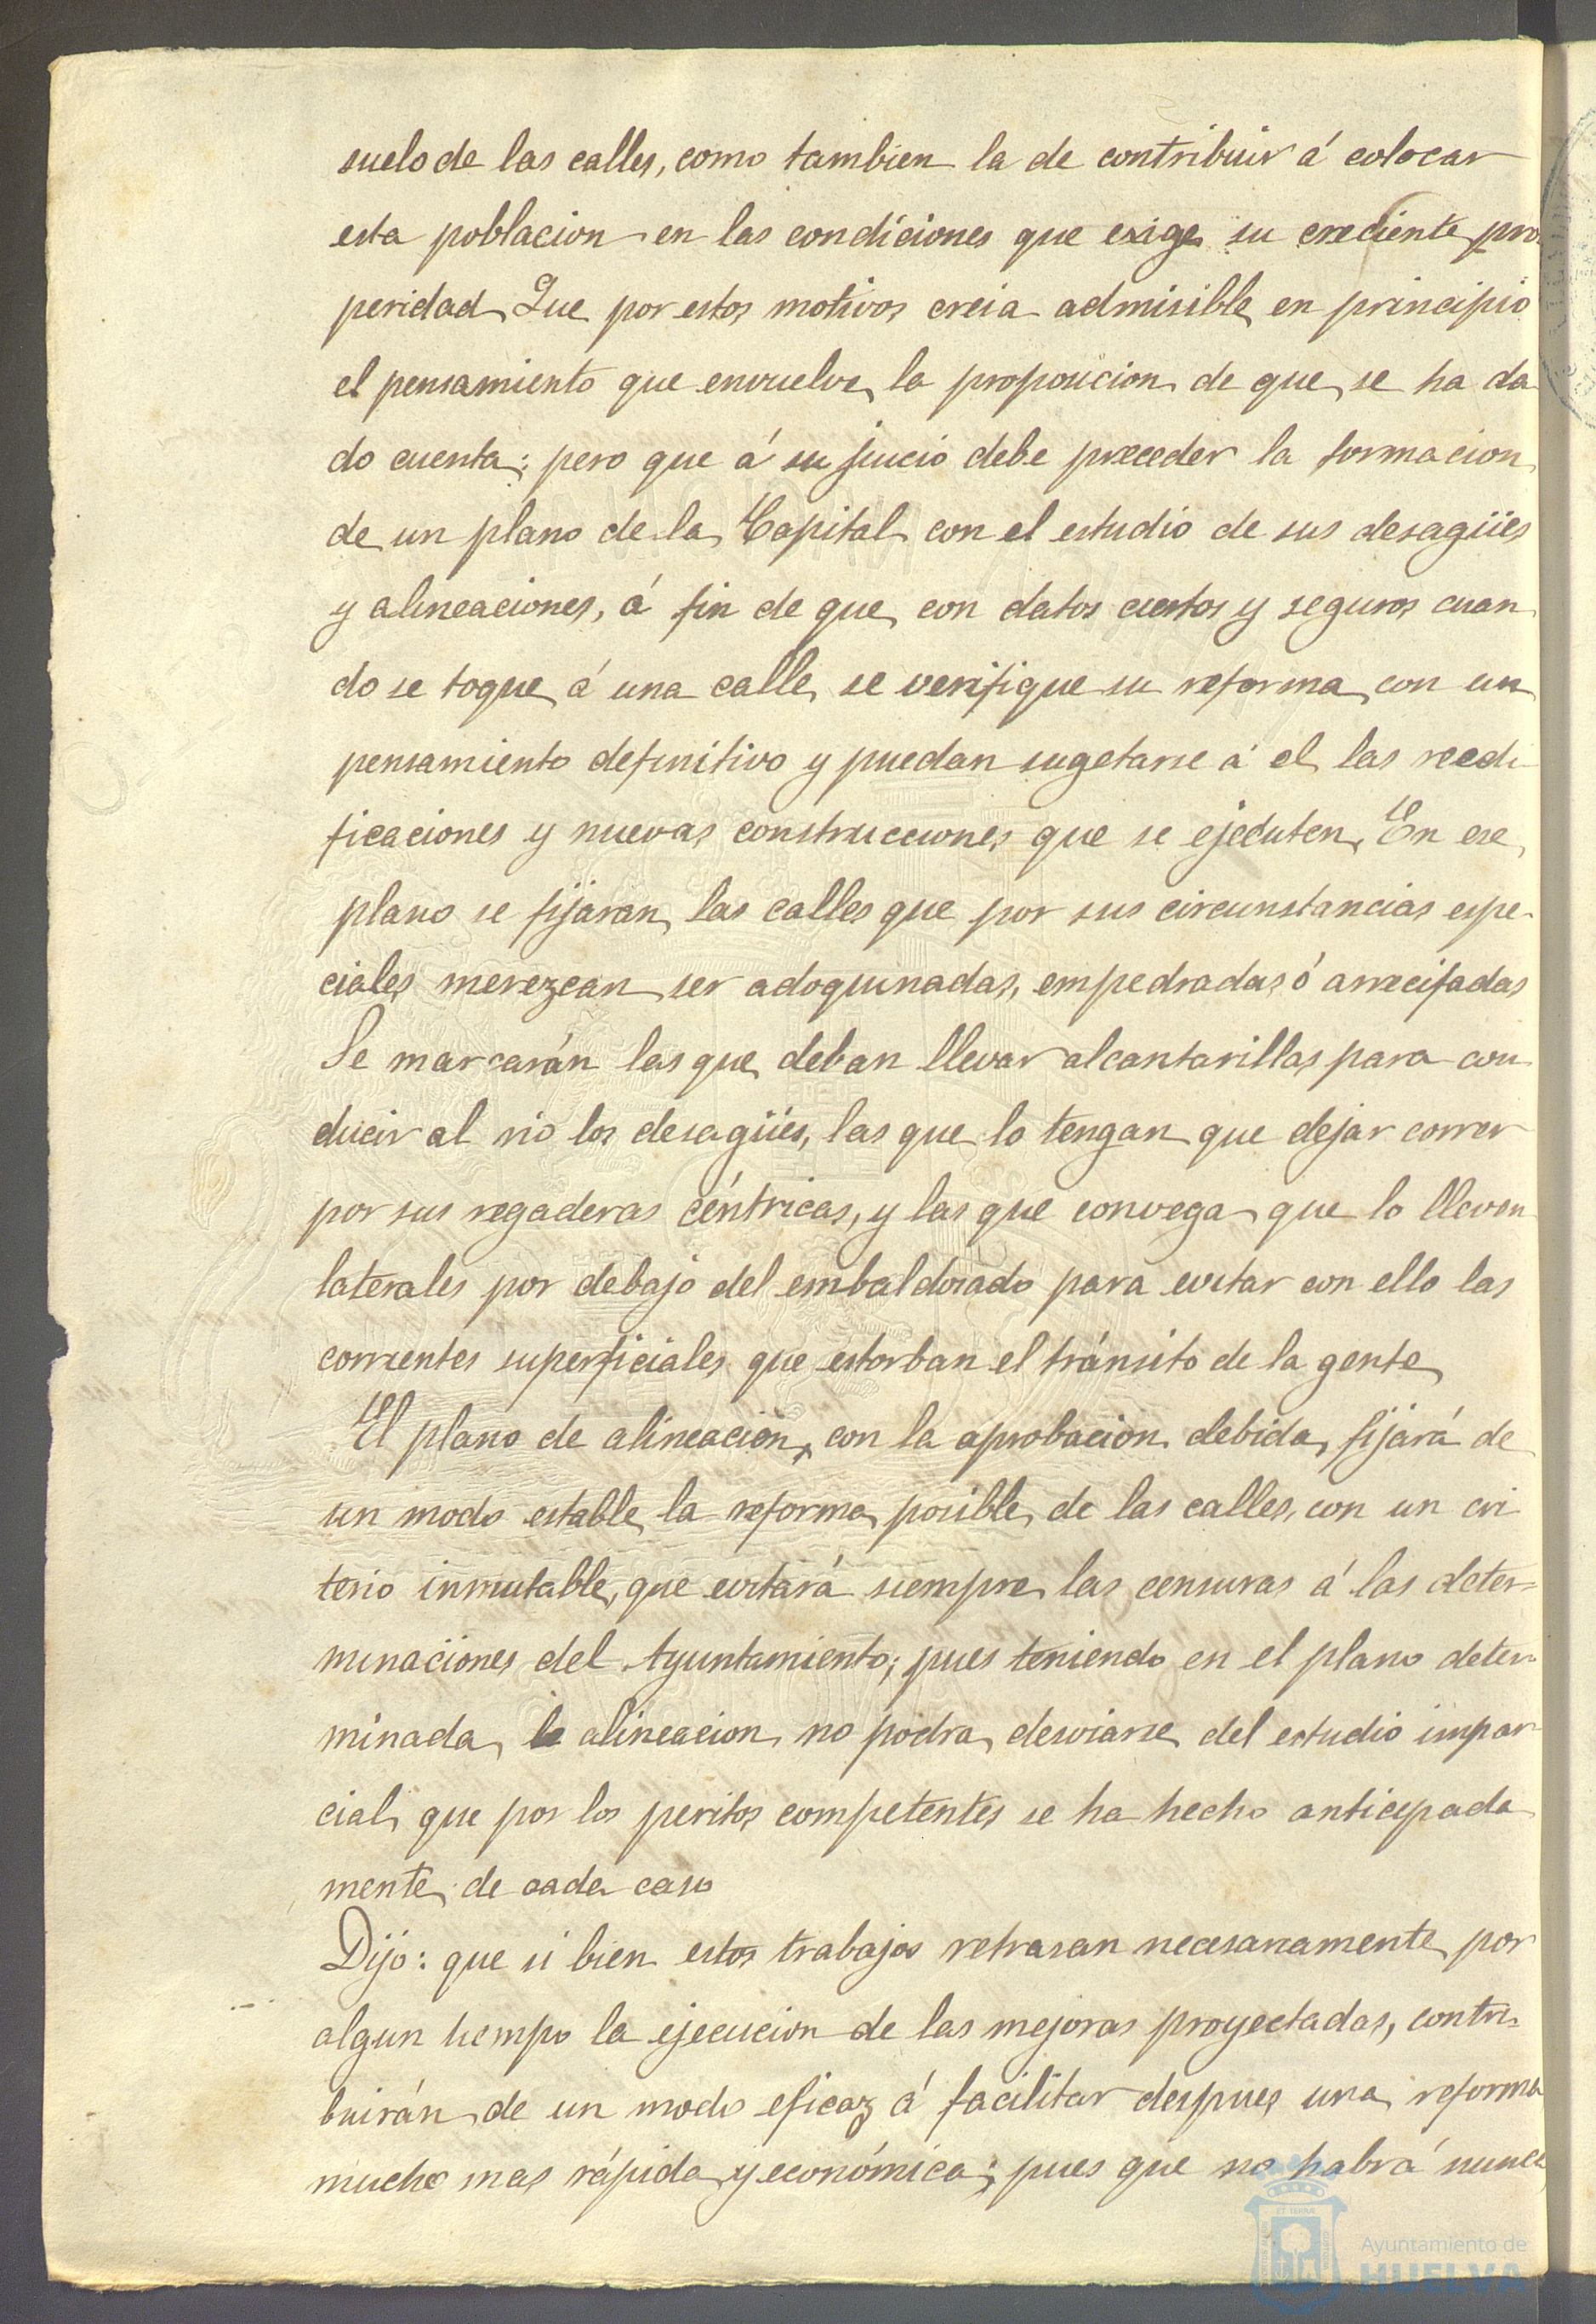 suelo de las calles, como tambien la de contribuir á colocar
esta poblacion en las condiciones que exige su creciente pros
peridad Que por estos motivos creia admisible en principio
el pensamiento que envuelve la proposicion de que se ha da
do cuenta; pero que á su juicio debe preceder la formacion
de un plano de la Capital con el estudio de sus desagües
y alineaciones, á fin de que con datos ciertos y seguros cuan
do se toque á una calle se verifique su reforma con un
pensamiento definitivo y puedan sugetarse á el las reedi
ficaciones y nuevas construcciones que se ejecuten. En ese
plano se fijaran las calles que por sus circunstancias espe-
ciales merezcan ser adoquinadas, empedradas ó arrecifadas
Se marcarán las que deban llevar alcantarillas para con
ducir al rio los desagües, las que lo tengan que dejar correr
por sus regaderas céntricas, y las que convega que lo lleven
laterales por debajo del embaldosado para evitar con ello las
corrientes superficiales que estorban el tránsito de la gente
El plano de alineacion, con la aprobacion debida, fijará de
un modo estable la reforma posible de las calles, con un cri
terio inmutable, que evitará siempre las censuras á las deter=
minaciones del Ayuntamiento; pues teniendo en el plano deter-
minada la alineacion no podra desviarse del estudio impar
cial que por los peritos competentes se ha hecho anticipada
mente de cada caso
Dijo: que si bien estos trabajos retrasan necesariamente por
algun tiempo la ejecucion de las mejoras proyectadas, contri-
buirán de un modo eficaz á facilitar despues una reforma
mucho mas rápida y económica; pues que no habrá nunca
Ayuntamiento de
HUELVA